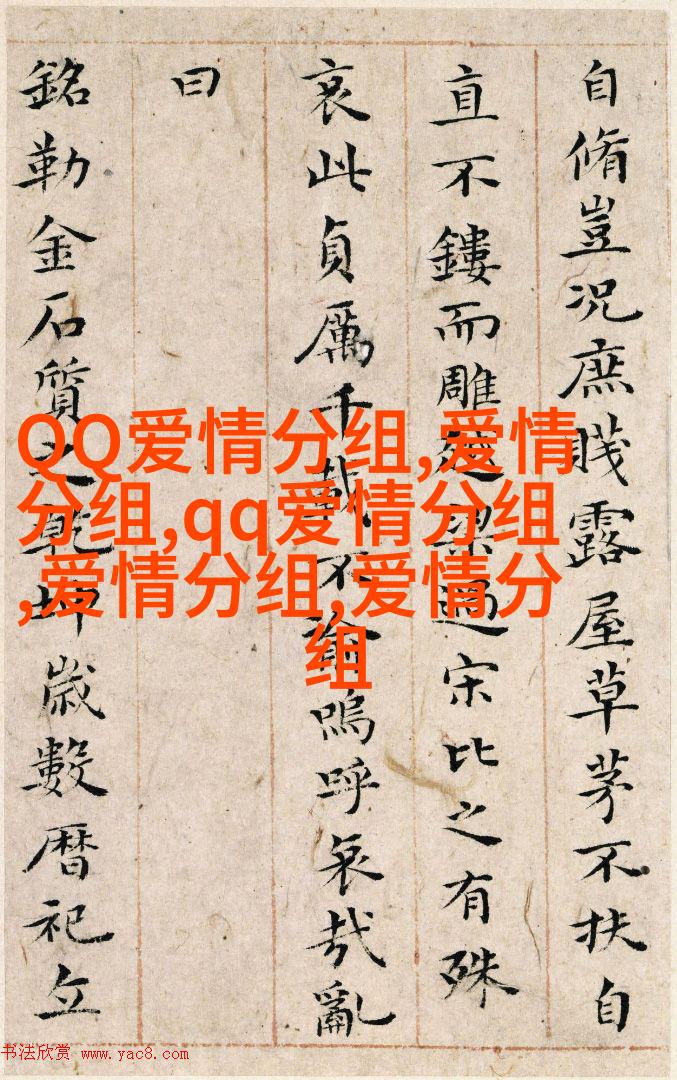 自脩豈況庶賤露屋草茅不扶自
直不鏤而雕越梁過宋比之有殊
哀此貞厲千載不渝嗚呼哀哉亂
曰
銘勒金石質之乾坤歲數曆祀立
QQ爱情分组,爱情
分组,qq爱情分组
,爱情分组,爱情分
组
书法欣赏 www.yac8.com